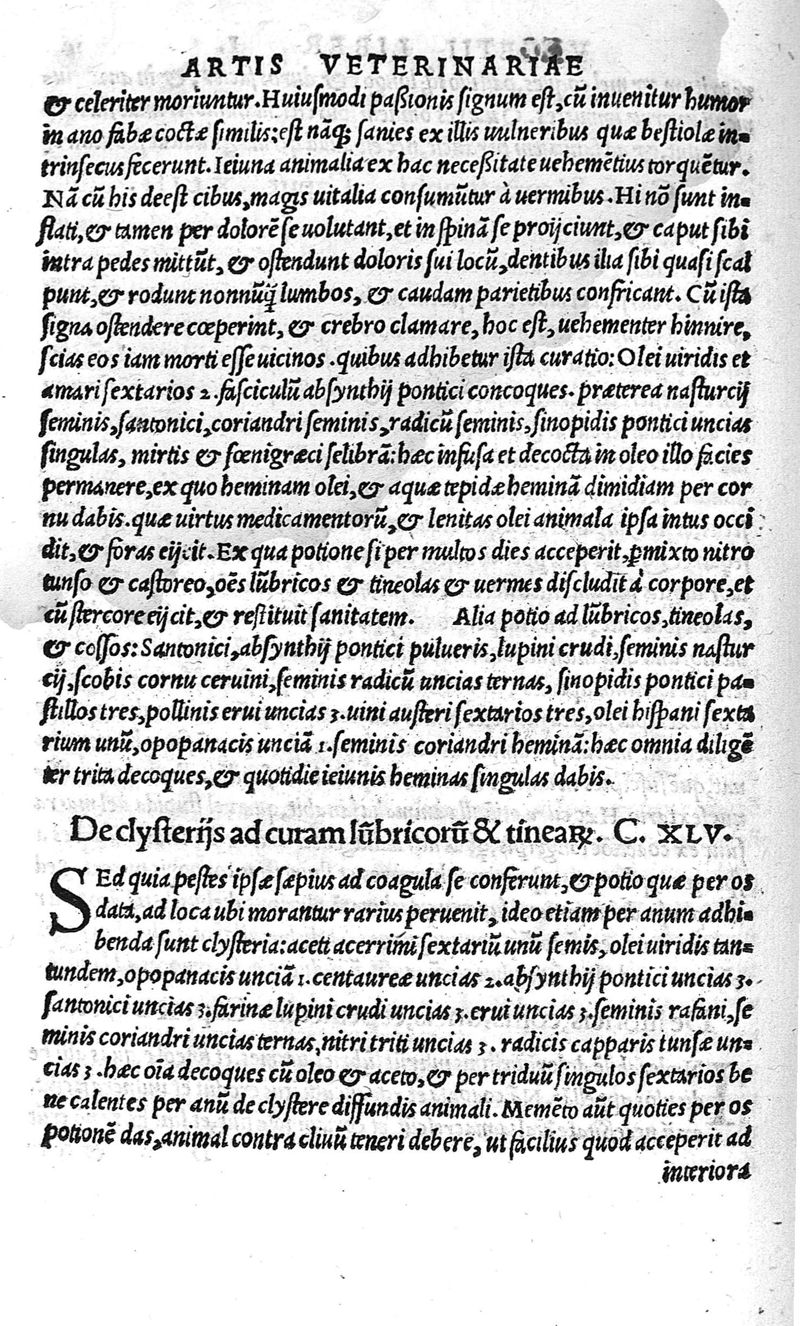 ARTIS VETERINARIAE
& celeriter moriuntur. Huiusmodi paßionis signum est, cũ inuenitur humor
in ano fabæ coctæ similis: est nãq; sanies ex illis uulneribus quæ bestiolæ in=
trinsecus fecerunt. Ieiuna animalia ex hac neceßitate uehemẽtius torquẽtur.
Nã cũ his deest cibus, magis uitalia consumũtur à uermibus. Hi nõ sunt in=
flati, & tamen per dolorẽ se uolutant, et in spinã se proijciunt, & caput sibi
intra pedes mittũt, & ostendunt doloris sui locũ, dentibus ilia sibi quasi scal
punt, & rodunt nonnũq̃ lumbos, & caudam parietibus confricant. Cũ ista
signa ostendere cœperint, & crebro clamare, hoc est, uehementer hinnire,
scias eos iam morti esse uicinos. quibus adhibetur ista curatio: Olei uiridis et
amari sextarios 2. fasciculũ absynthij pontici concoques. præterea nasturcij
seminis, santonici, coriandri seminis, radicũ seminis, sinopidis pontici uncias
singulas, mirtis & fœnigræci selibrã: hæc infusa et decocta in oleo illo facies
permanere, ex quo heminam olei, & aquæ tepidæ heminã dimidiam per cor
nu dabis. quæ uirtus medicamentorũ, & lenitas olei animala ipsa intus occi
dit, & foras eijcit. Ex qua potione si per multos dies acceperit, ꝑmixto nitro
tunso & castoreo, oẽs lũbricos & tineolas & uermes discludit à corpore, et
cũ stercore eijcit, & restituit sanitatem. Alia potio ad lũbricos, tineolas,
& cossos: Santonici, absynthij pontici pulueris, lupini crudi, seminis nastur
cij, scobis cornu ceruini, seminis radicũ uncias ternas, sinopidis pontici pa=
stillos tres, pollinis erui uncias 3. uini austeri sextarios tres, olei hispani sexta
rium unũ, opopanacis unciã 1. seminis coriandri heminã: hæc omnia diligẽ
ter trita decoques, & quotidie ieiunis heminas singulas dabis.
De clysterijs ad curam lũbricorũ & tineaꝝ. C. XLV.
SEd quia pestes ipsæ sæpius ad coagula se conferunt, & potio quæ per os
data, ad loca ubi morantur rarius peruenit, ideo etiam per anum adhi=
benda sunt clysteria: aceti acerrimi sextariũ unũ semis, olei uiridis tan=
tundem, opopanacis unciã 1. centaureæ uncias 2. absynthij pontici uncias 3.
santonici uncias 3. farinæ lupini crudi uncias 3. erui uncias 3. seminis rafani, se
minis coriandri uncias ternas, nitri triti uncias 3. radicis capparis tunsæ un=
cias 3. hæc oĩa decoques cũ oleo & aceto, & per triduũ singulos sextarios be
ne calentes per anũ de clystere diffundis animali. Memẽto aũt quoties per os
potionẽ das, animal contra cliuũ teneri debere, ut facilius quod acceperit ad
interiora